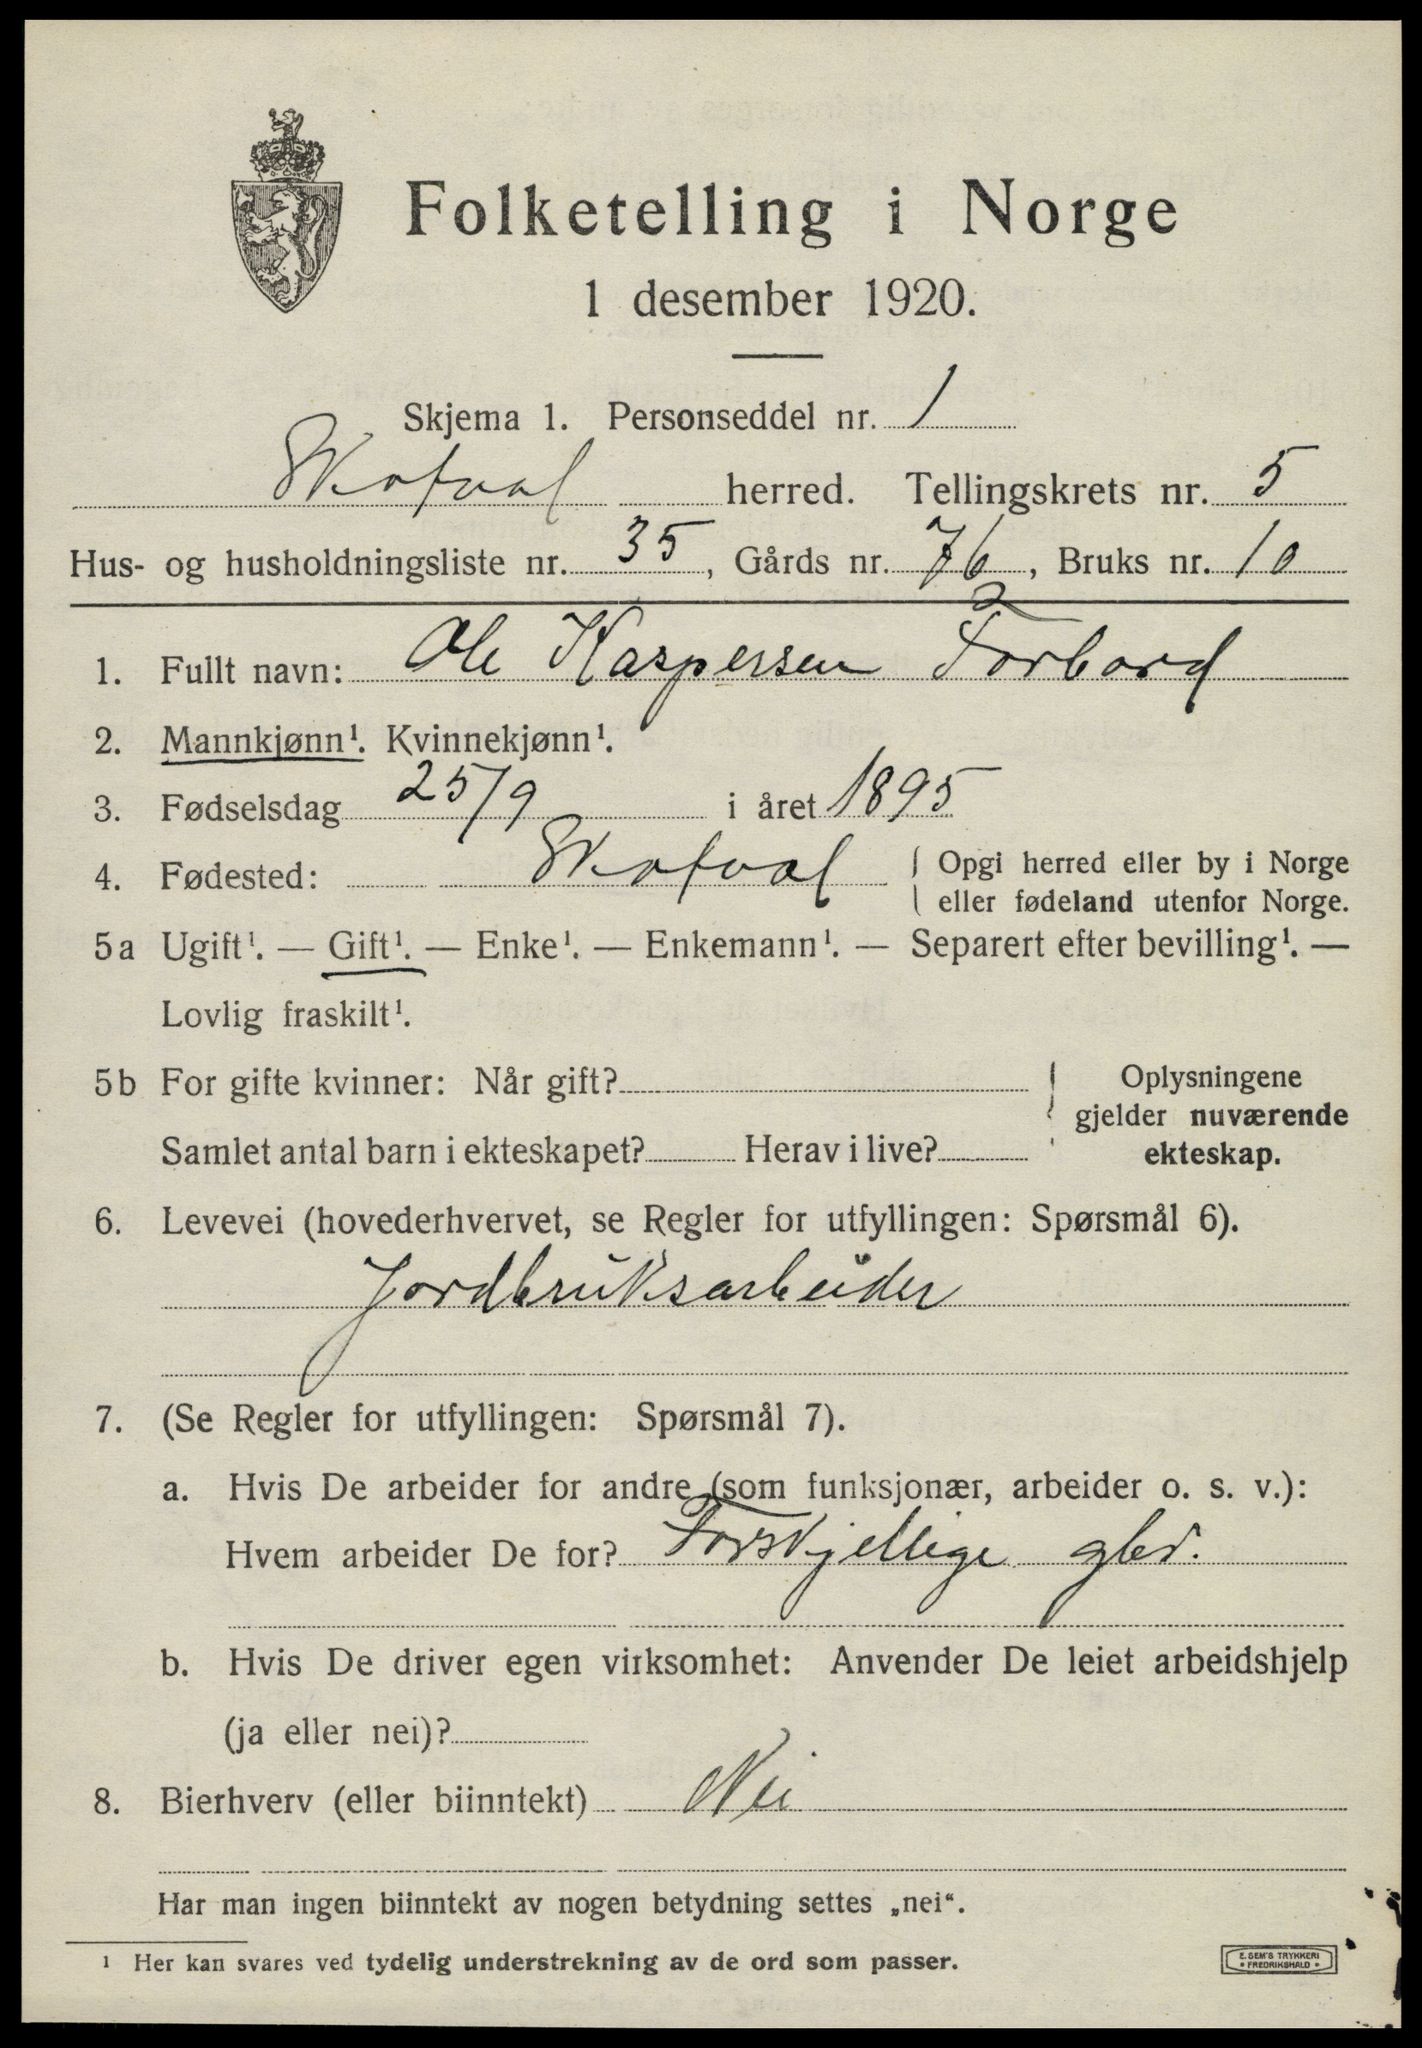 Folketelling i Norge
1 desember 1920.
Skjema 1. Personseddel nr. 1
Skatval herred. Tellingskrets nr. 5
Hus- og husholdningsliste nr. 35, Gårds nr. 76, Bruks nr. 10
1. Fullt navn: Ole Kaspersen Forbord
2. Mannkjønn¹. Kvinnekjønn¹.
3. Fødselsdag 25/9 i året 1895
4. Fødested: Skatval { Opgi herred eller by i Norge
eller fødeland utenfor Norge.
5a Ugift¹. — Gift¹. — Enke¹. — Enkemann¹. — Separert efter bevilling¹. —
Lovlig fraskilt¹.
5b For gifte kvinner: Når gift? } Oplysningene
gjelder nuværende
Samlet antal barn i ekteskapet? Herav i live? ekteskap.
6. Levevei (hovederhvervet, se Regler for utfyllingen: Spørsmål 6).
Jordbruksarbeider
7. (Se Regler for utfyllingen: Spørsmål 7).
a. Hvis De arbeider for andre (som funksjonær, arbeider o. s. v.):
Hvem arbeider De for? Forskjellige gbr.
b. Hvis De driver egen virksomhet: Anvender De leiet arbeidshjelp
(ja eller nei)?
8. Bierhverv (eller biinntekt) Nei
Har man ingen biinntekt av nogen betydning settes „nei“.
¹ Her kan svares ved tydelig understrekning av de ord som passer.
E. SEM'S TRYKKERI
FREDRIKSHALD